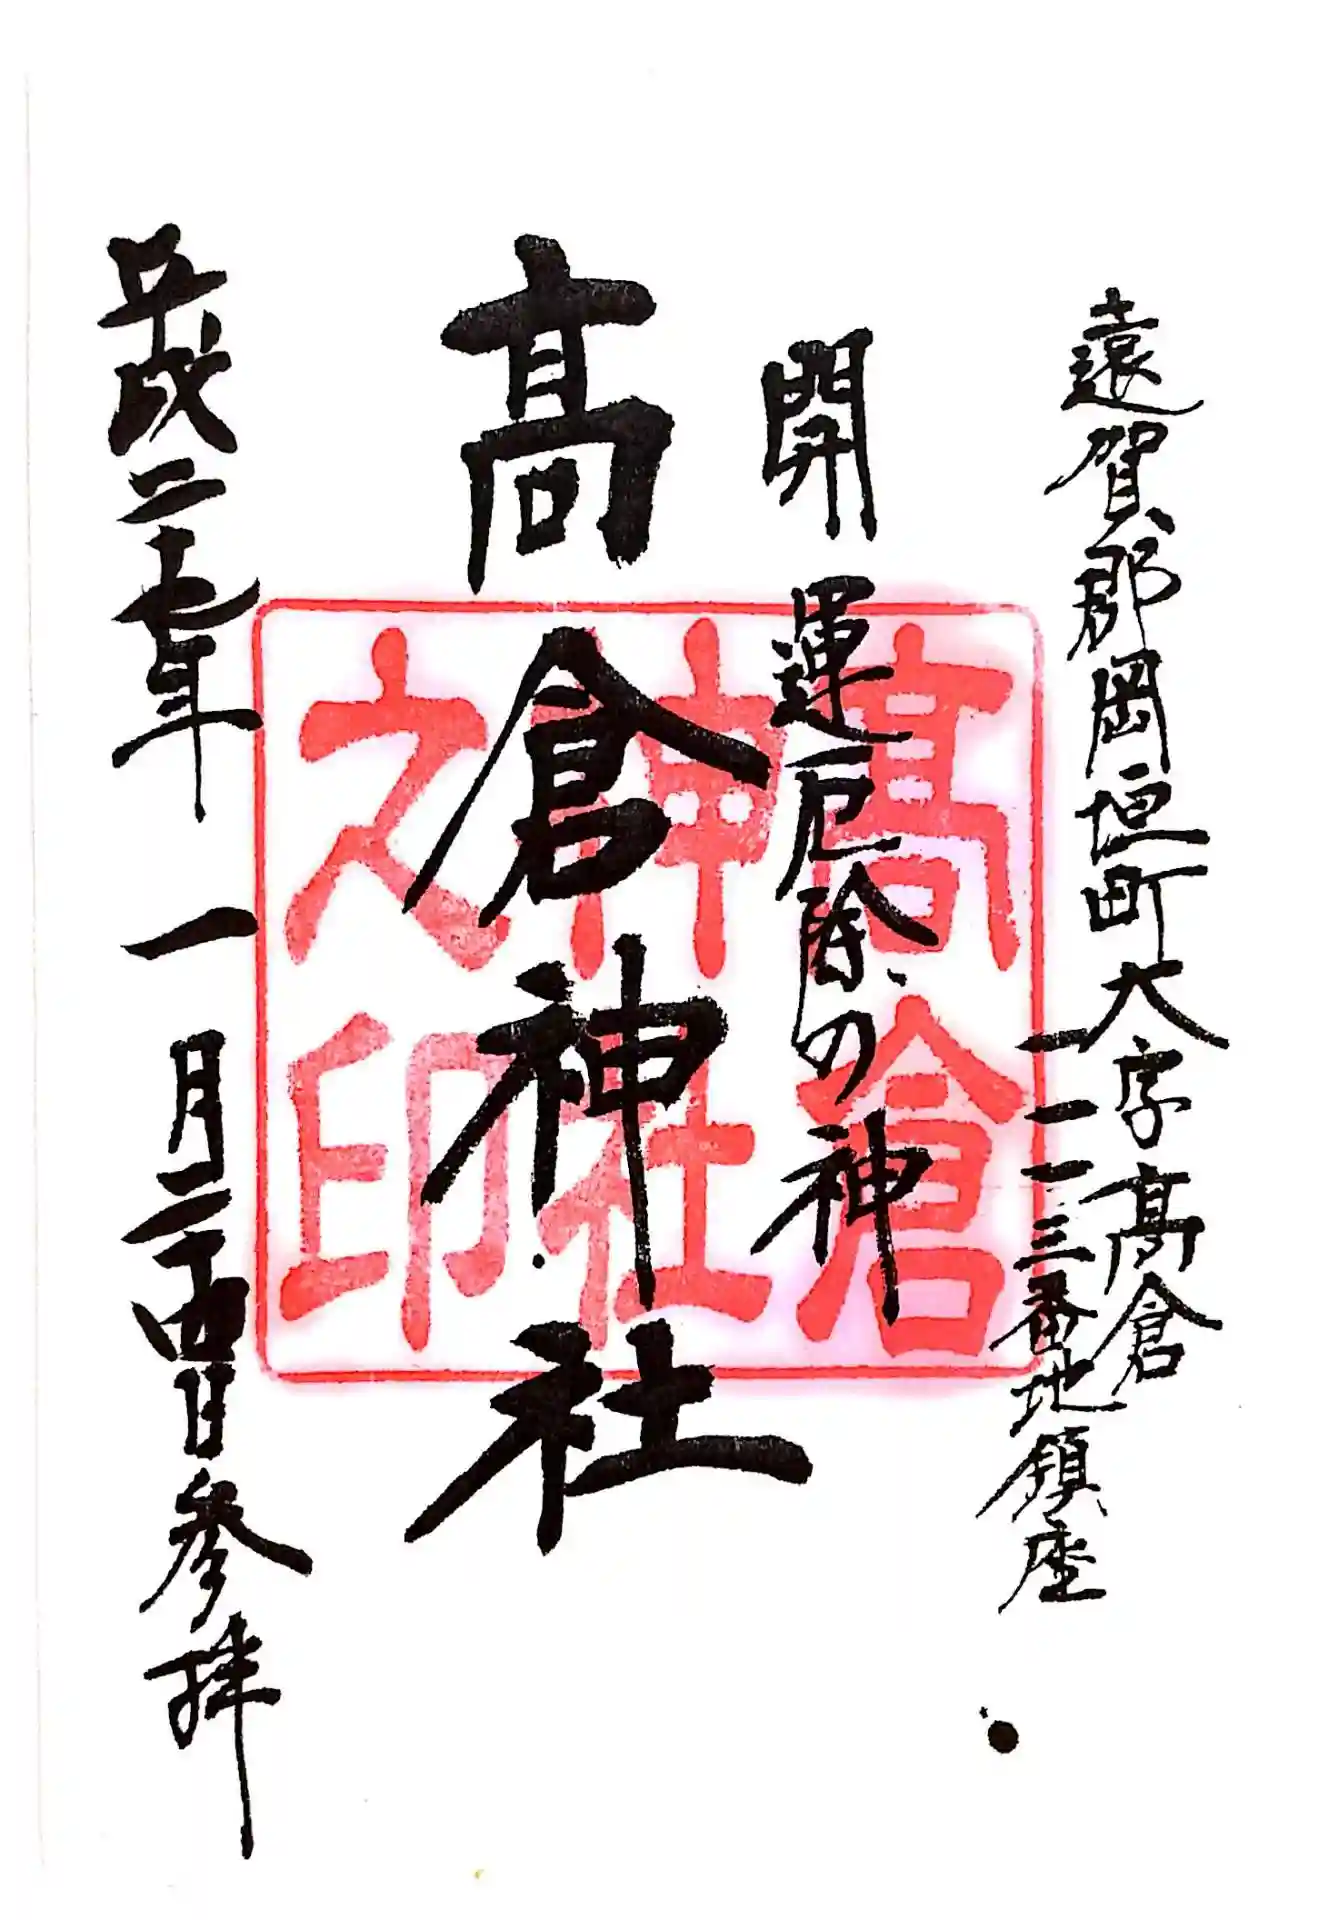 遠賀郡岡垣町大字髙倉
一一一三番地鎮座
開運厄除の神
髙倉神社
平成二十七年一月二十四日参拝
髙倉
神社
之印